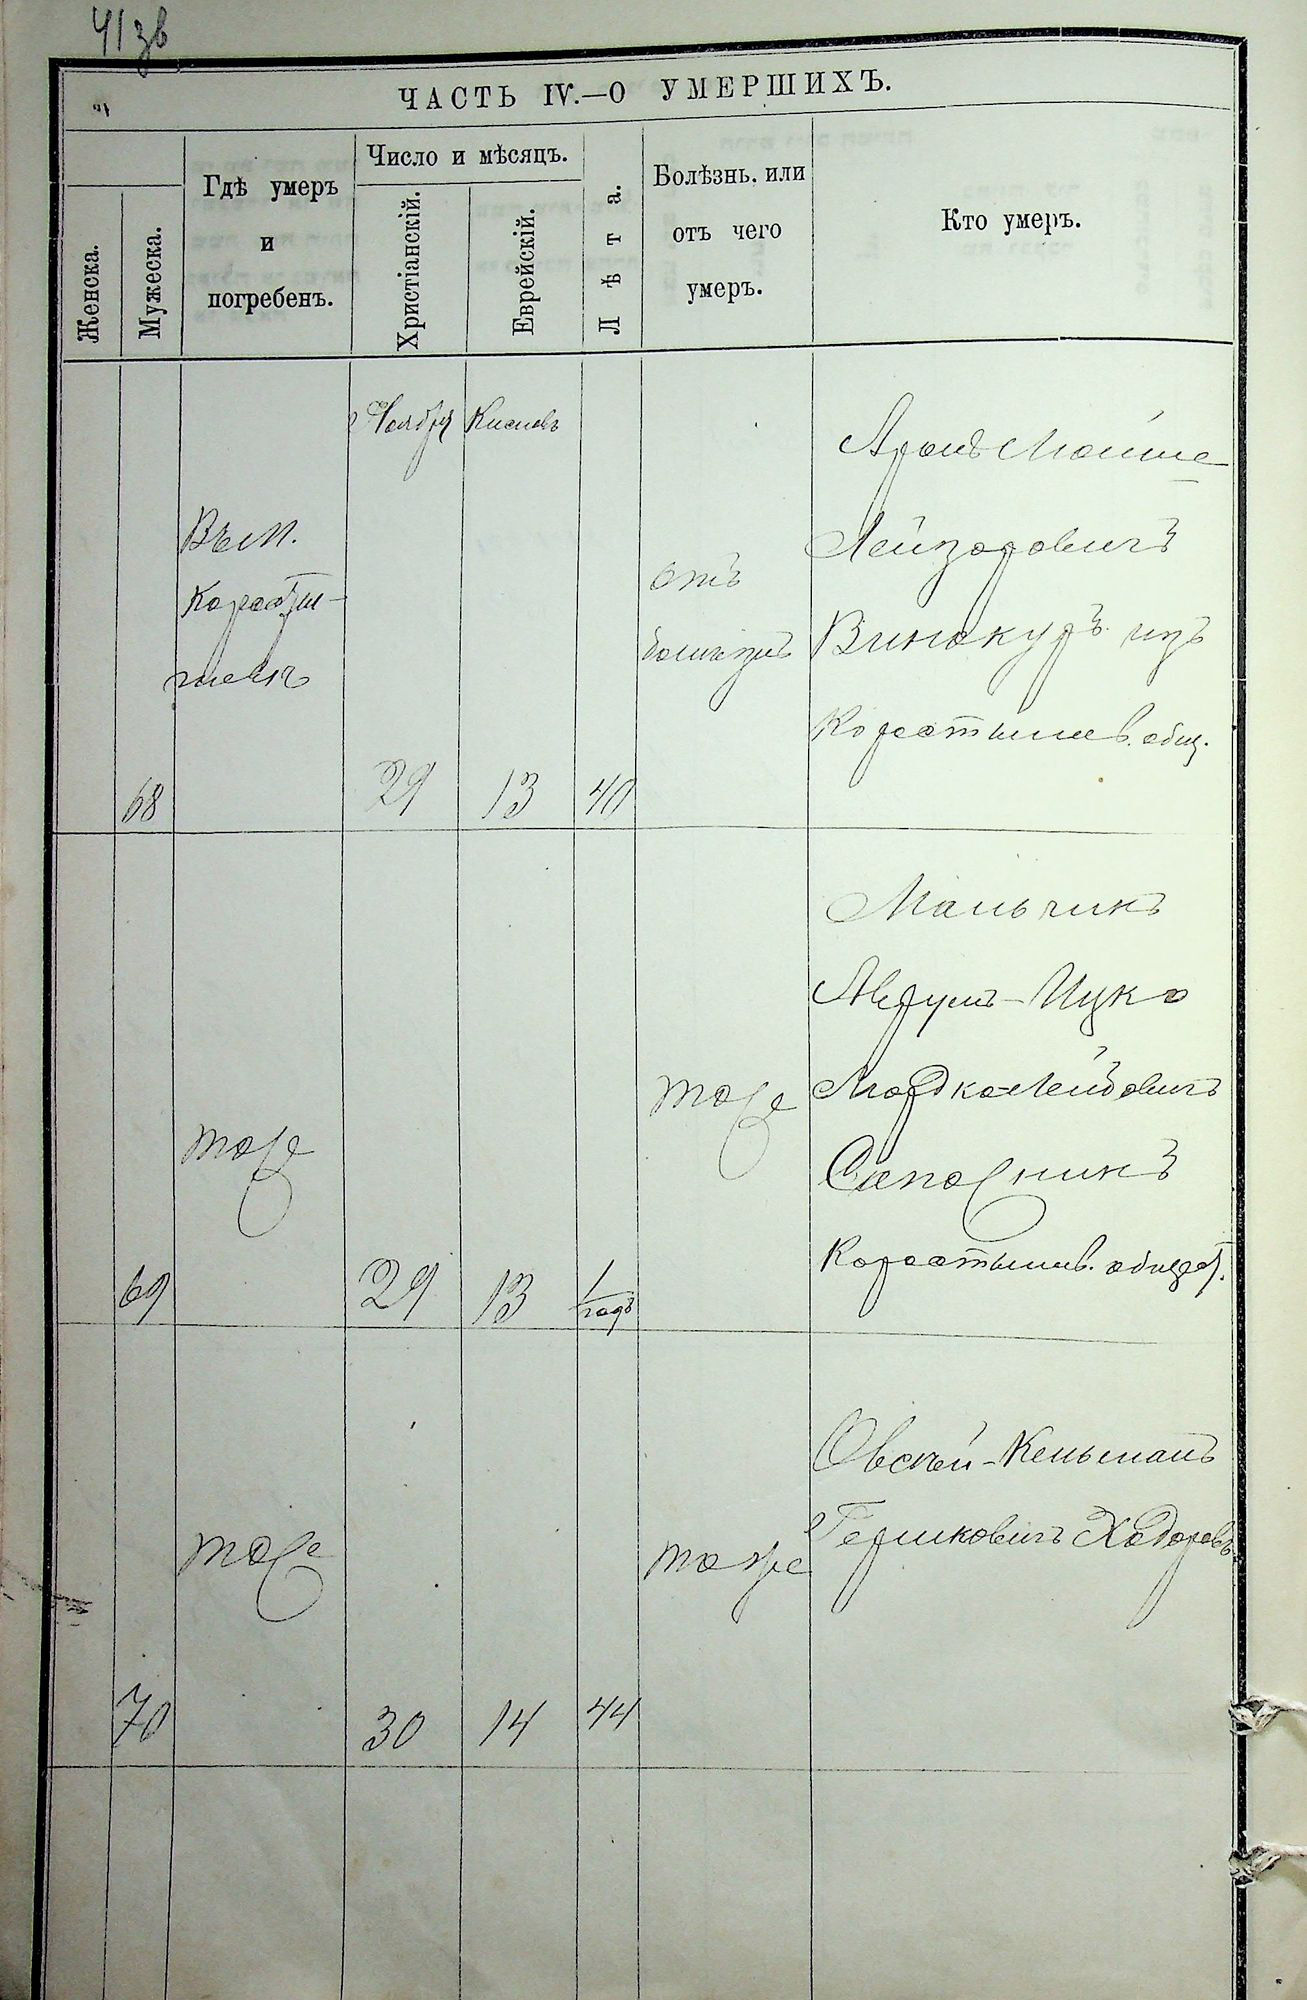 41 зв
ЧАСТЬ IV.—О УМЕРШИХЪ.
Женска.
Мужеска.
Гдѣ умеръ
и
погребенъ.
Число и мѣсяцъ.
Христіанскій.
Еврейскій.
Лѣта.
Болѣзнь. или
отъ чего
умеръ.
Кто умеръ.
Ноября Кислевъ
Аронъ Мойше
Въ м.
Лейзоровичъ
Коросты-
отъ
Винокуръ изъ
шевѣ
болѣзни
Коростышев. общ.
68 29 13 40
Мальчикъ
Аврумъ-Ицко
Мордко-Лейбовичъ
тоже тоже
Сапожникъ
Коростышев. общест.
69 29 13 1 годъ
Овсѣй-Кельманъ
Гершковичъ Ходоровъ
тоже тоже
70 30 14 44